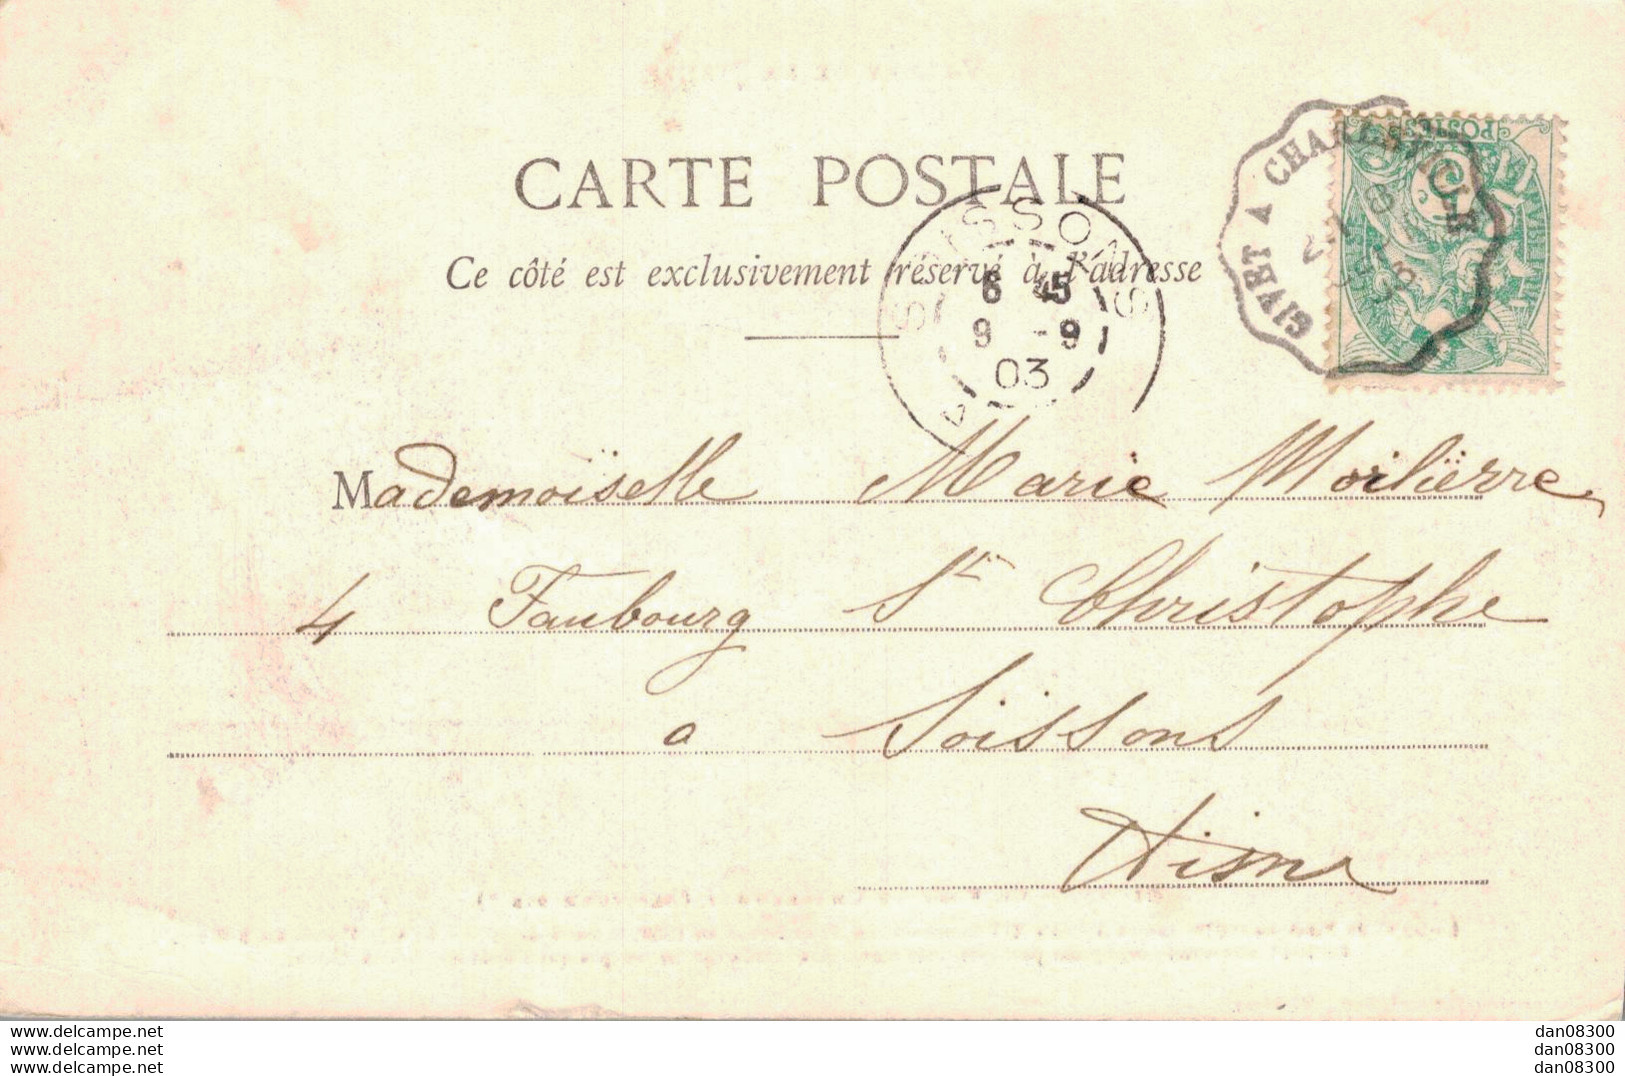 CARTE POSTALE
Ce côté est exclusivement réservé à l'adresse
GIVET A CHARLEVILLE
POSTES
SOISSONS
6 45
9 -9
03
Mademoïselle Marie Moilïerre
4 Faubourg St Christophe
a Soissons
Aisne
www.delcampe.net
www.delcampe.net
www.delcampe.net
dan08300
dan08300
dan08300